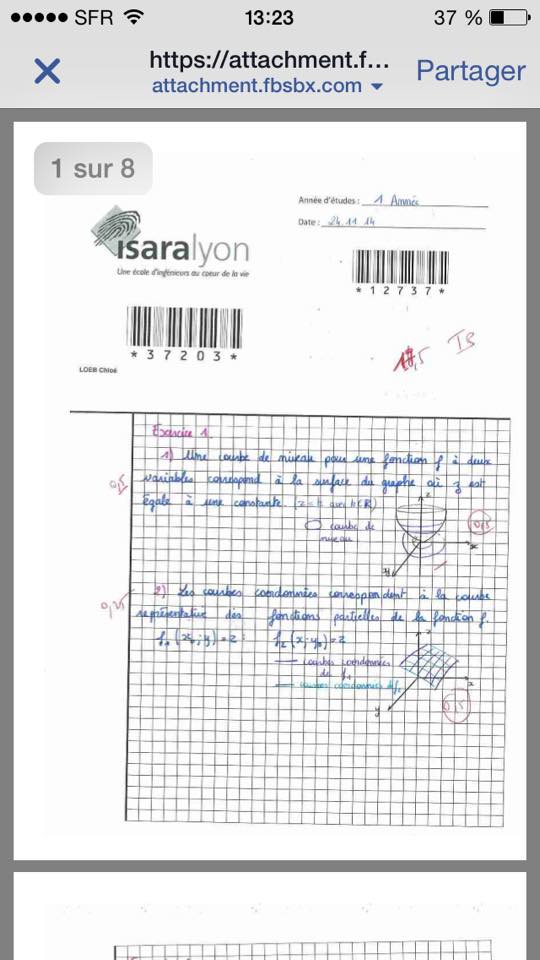 SFR 13:23 37 %
https://attachment.f...
attachment.fbsbx.com
Partager
1 sur 8
Année d'études : 1 Année
Date : 24.11.14
isaralyon
Une école d'ingénieurs au coeur de la vie
*12737*
*37203*
,5 TB
LOEB Chloé
Exercice 1.
1) Une courbe de niveau pour une fonction f à deux
0,5
variables correspond à la surface du graphe où z est
égale à une constante. (z = k avec k ∈ R)
z
courbe de
niveau
0,5
x
y
2) Les courbes coordonnées correspondent à la courbe
0,25
représentative des fonctions partielles de la fonction f.
f₁(x₀;y)=z : f₂(x;y₀)=z
z
courbes coordonnées
de f₁
courbes coordonnées de f₂
x
y
0,5